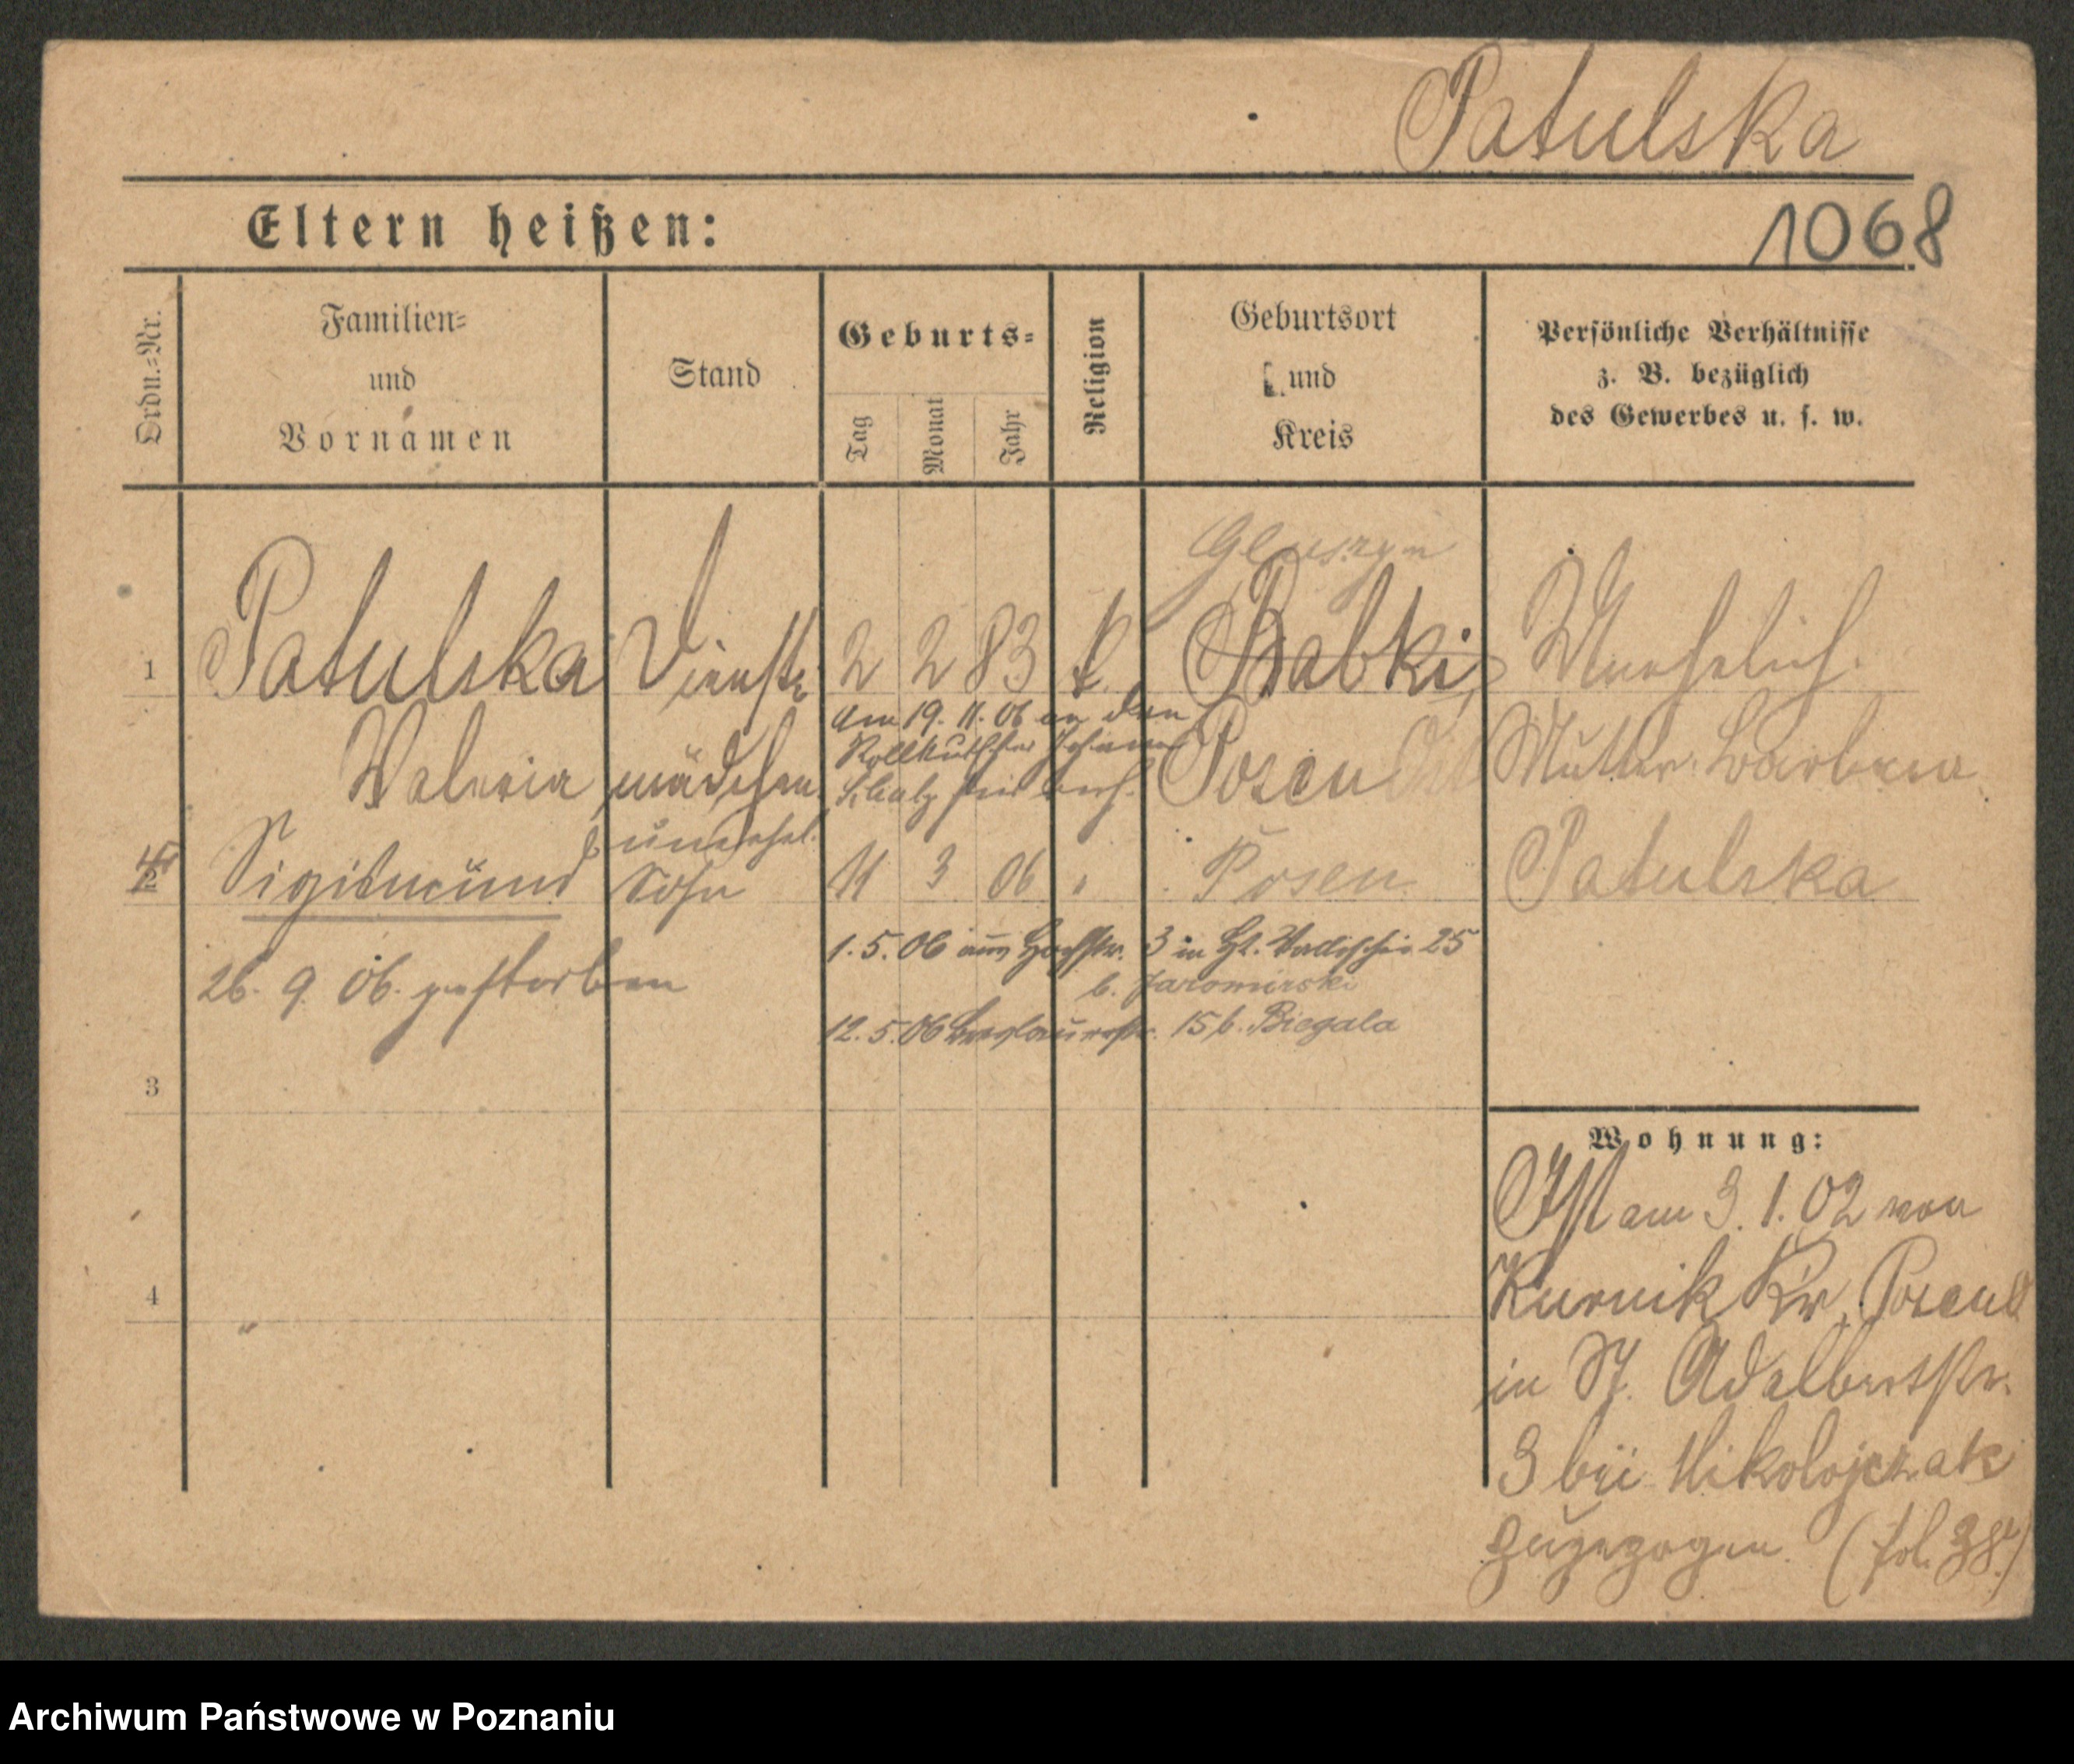 Patulska
Eltern heißen:
1068
Ordn.=Nr.
Familien=
und
Vornamen
Stand
Geburts=
Tag
Monat
Jahr
Religion
Geburtsort
und
Kreis
Persönliche Verhältnisse
z. B. bezüglich
des Gewerbes u. s. w.
Gluszyn
1 Patulska Dienst= 2 2 83 k. Babki, Unehelich.
am 19. 11. 06 an den
Rollkutscher Johann
Valeria mädchen Posen Ost Mutter Barbara
Schulz sich verh.
unehel.
2 Sigismund Sohn 11 3 06 " Posen Patulska
1.5.06 aus Hochstr. 3 in St. 25
26. 9. 06. gestorben
b. Jaromirski
12.5.06 Breslauerstr. 15 b. Biegala
3
Wohnung:
Ist am 3. 1. 02 von
4 Kurnik Kr. Posen
in St. Adalbertstr.
3 bei Mikolajczak
zugezogen. (fol. 38)
Archiwum Państwowe w Poznaniu